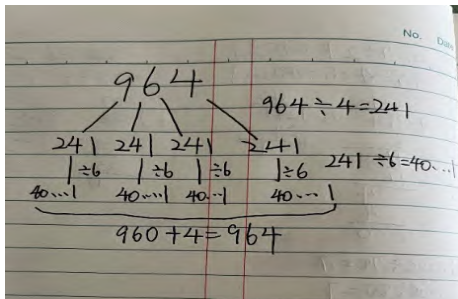 No.
Date
964
964÷4=241
241 241 241 241
÷6 ÷6 ÷6 ÷6
241÷6=40...1
40...1 40...1 40...1 40...1
960+4=964